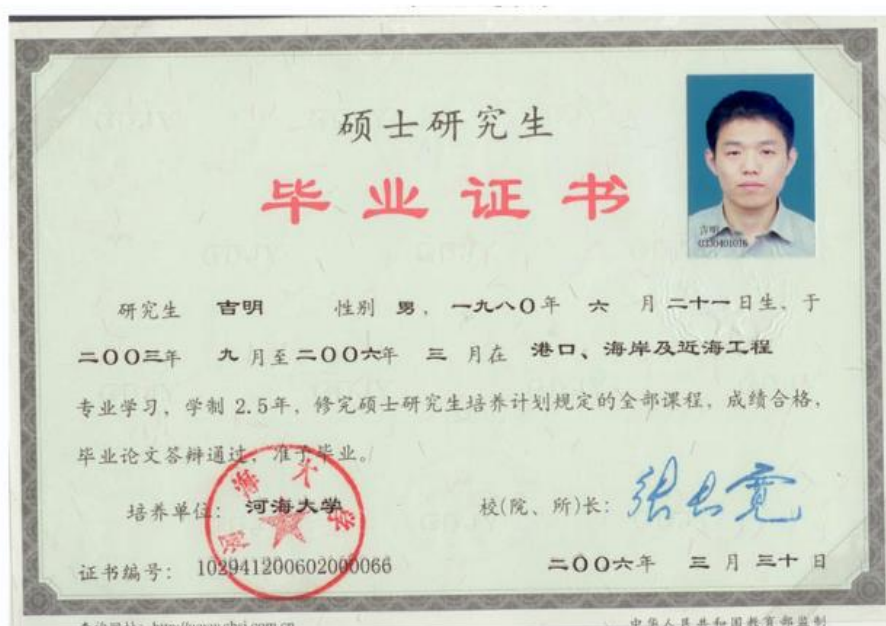 硕士研究生
毕业证书
吉明
0330401016
研究生 吉明 性别 男，一九八〇年 六 月二十一日生、于
二〇〇三年 九 月至二〇〇六年 三 月在 港口、海岸及近海工程
专业学习，学制 2.5年，修完硕士研究生培养计划规定的全部课程，成绩合格，
毕业论文答辩通过，准予毕业。
河海大学
培养单位：河海大学 校(院、所)长：张长宽
证书编号：102941200602000066 二〇〇六年 三 月 三十 日
中华人民共和国教育部监制